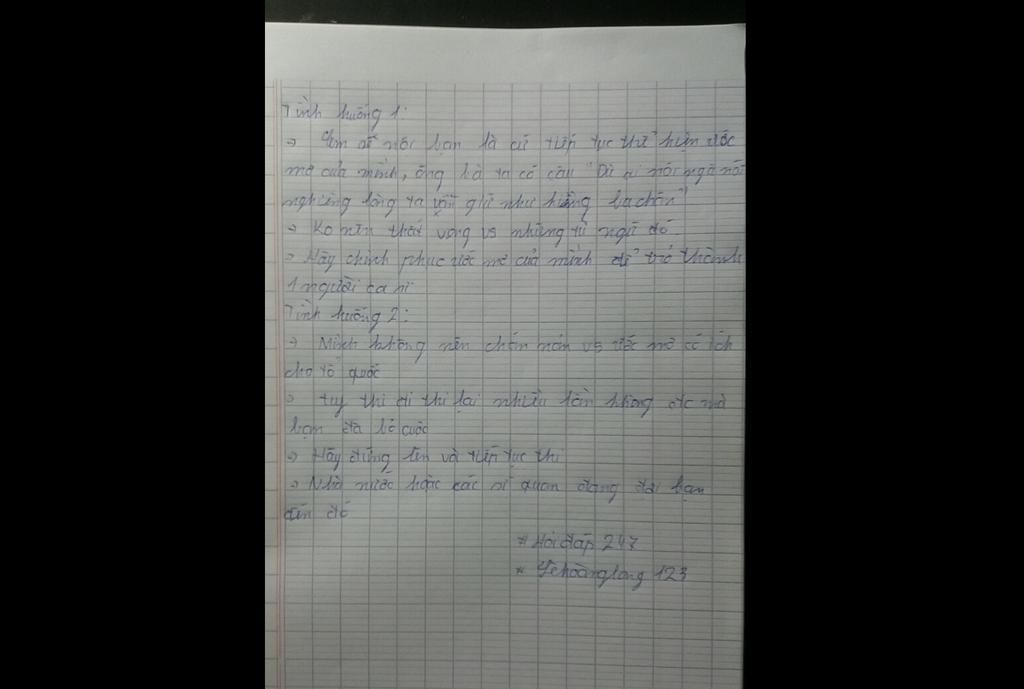 Tình huống 1:
→ Em sẽ nói bạn là cứ tiếp tục thể hiện ước
mơ của mình, ông bà ta có câu "Dù ai nói ngã nói
nghiêng lòng ta vẫn giữ như kiềng ba chân"
→ Ko nên thất vọng vs những từ ngữ đó.
→ Hãy chinh phục ước mơ của mình để trở thành
1 người ca sĩ
Tình huống 2:
→ Mình không nên chán nản vs ước mơ có ích
cho tổ quốc
→ tuy thi đi thi lại nhiều lần không đc mà
bạn đã bỏ cuộc
→ Hãy đứng lên và tiếp tục thi
→ Nhà nước hoặc các sĩ quan đang đợi bạn
đến đó
* Hỏi đáp 247
* lehoanglong 123